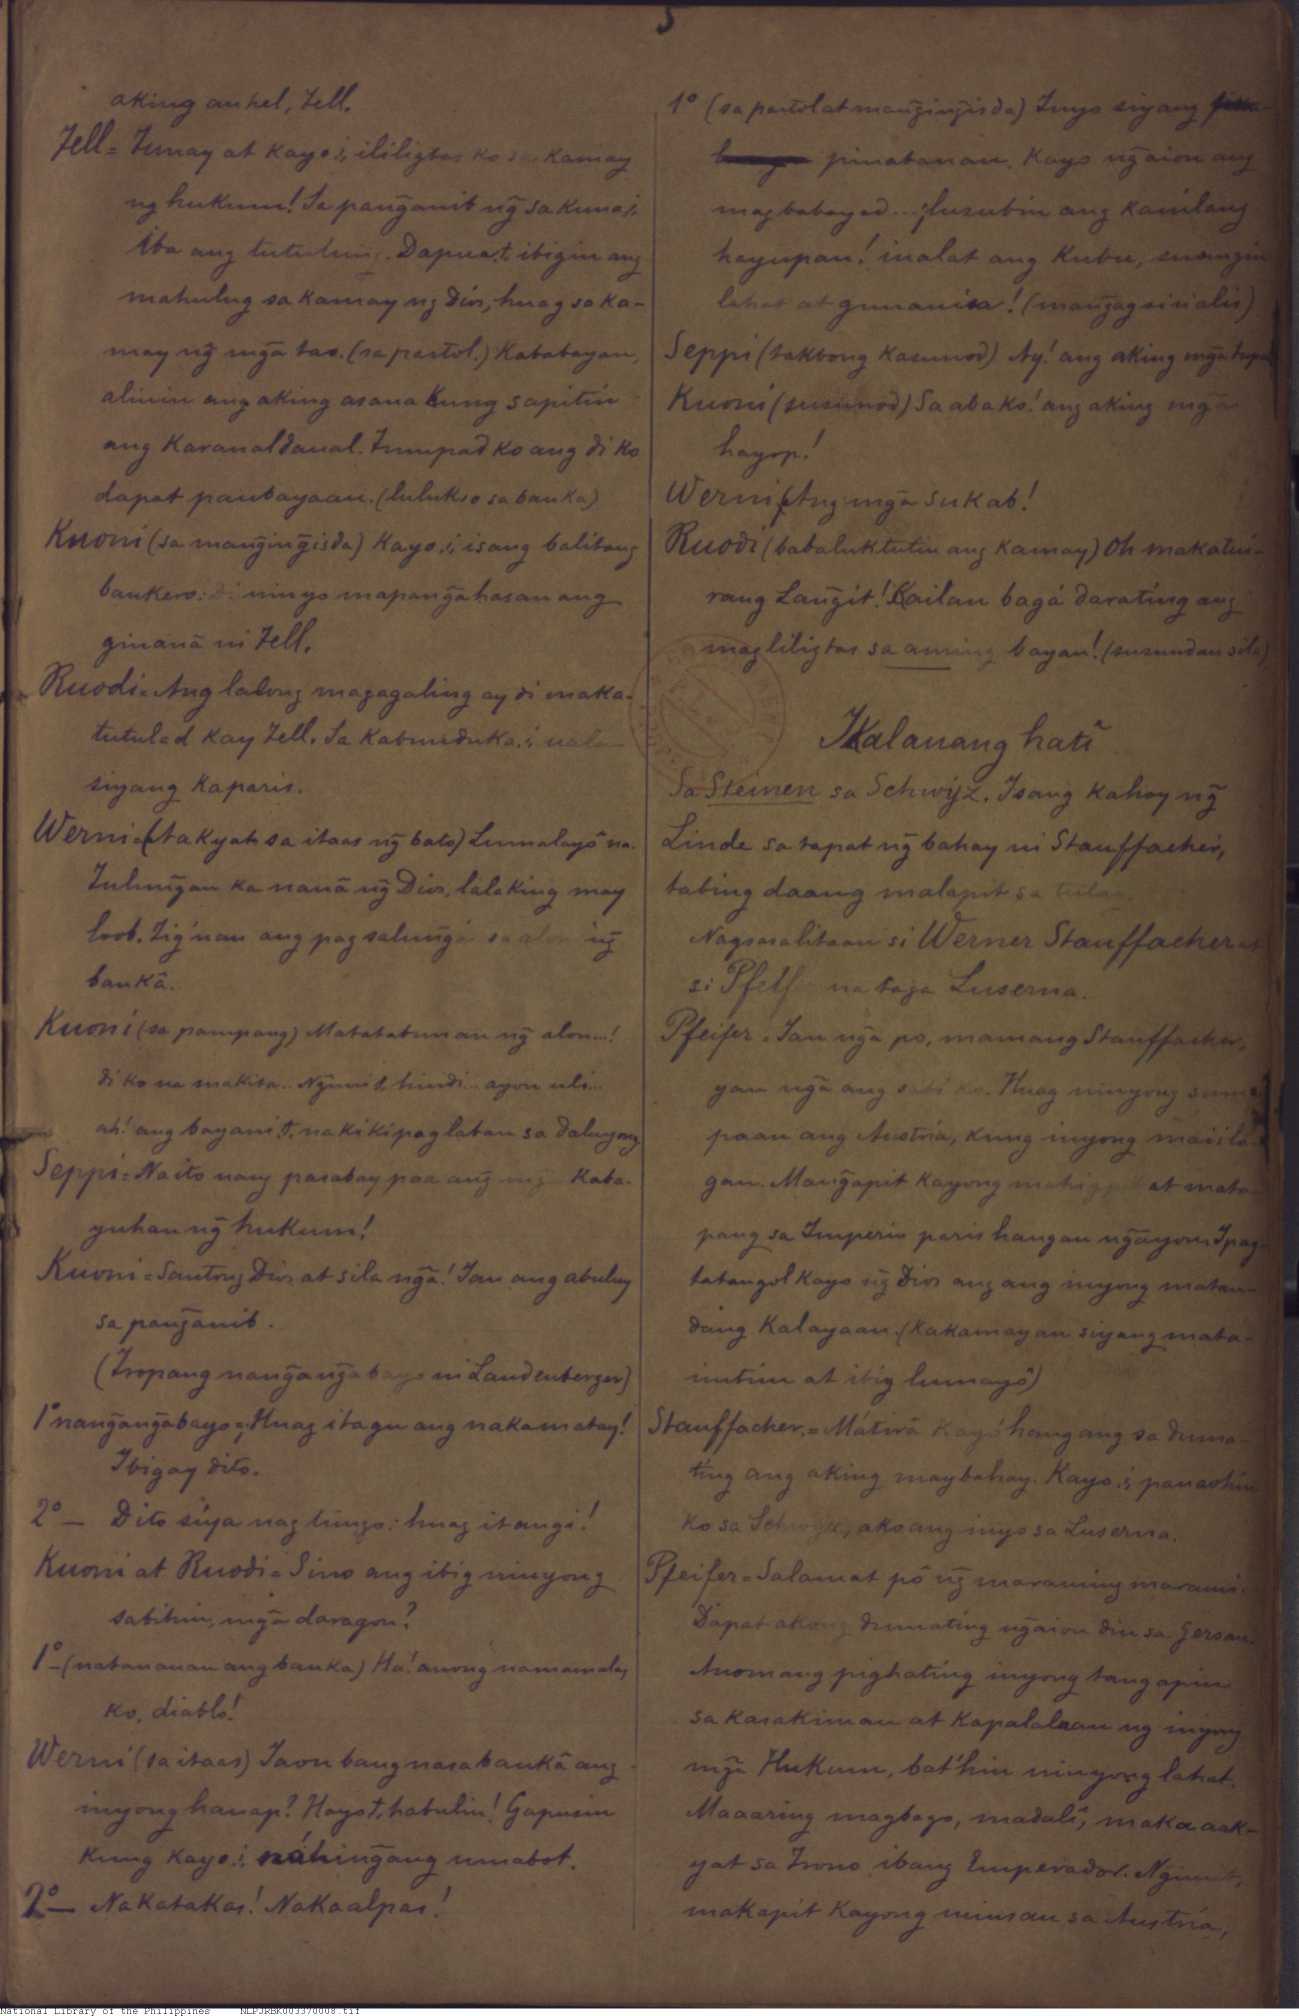 5
aking anhel, Tell.
Tell = Tunay at kayo,i, ililigtas ko sa kamay
ng hukum! Sa pang̃anib ng̃ sakuna,i,
iba ang tutulung. Dapua,t ibigin ang
mahulug sa kamay ng Dios, huag sa ka-
may ng̃ mg̃a tao. (sa pastol.) Kababayan,
aliwin ang aking asaua kung sapitin
ang karanaldaual. Tumupad ko ang di ko
dapat paubayaan. (lulukso sa banka)
Kuoni (sa mang̃ing̃isda) Kayo,i, isang balitang
bankero: di ninyo mapang̃ahasan ang
ginauā ni Tell.
Ruodi = Ang lalong magagaling ay di maka-
tutulad kay Tell. Sa kabunduka,i, uala
siyang kaparis.
Werni = (nakyat sa itaas ng̃ bato) Lumalayô na.
Tulung̃an ka nauā ng̃ Dios, lalaking may
loob. Tig'nan ang pag salung̃a sa alon ng̃
bankâ.
Kuoni (sa pampang) Matatabunan ng̃ alon...!
di ko na makita.. Ng̃uni,t, hindi... ayon uli...
ah! ang bayani,t, nakikipaglaban sa daluyong
Seppi = Naito nang pasabay paa ang mg̃a kaba-
yuhan ng̃ hukum!
Kuoni = Santong Dios at sila ng̃a! Ian ang abuluy
sa pang̃anib.
(Tropang nang̃ang̃abayo ni Landenberger)
1º nang̃ang̃abayo = ¡Huag itagu ang nakamatay!
Ibigay dito.
2º — Dito siya nag tung̃o: huag itangi!
Kuoni at Ruodi = Sino ang ibig ninyong
sabihin, mg̃a daragon?
1º — (natanauan ang banka) Ha! anong namamalas
ko, diablo!
Werni (sa itaas) Iaon bang nasa bankâ ang
inyong hanap? Hayo,t, habulin! Gapusin
kung kayo,i, náhing̃ang umabot.
2º — Nakatakas! Nakaalpas!
1º (sa pastol at mang̃ing̃isda) Inyo siyang
pinatanan. Kayo ng̃aion ang
magbabayad... ¡lusubin ang kanilang
hayupan! iualat ang kubu, sunugin
lahat at gumauisa! (mang̃agsisialis)
Seppi (takbong kasunod) Ay! ang aking mg̃a tupa
Kuoni (susunod) Sa aba ko! ang aking mg̃a
hayop!
Werni (Ang mg̃a sukab!
Ruodi (babaluktutin ang kamay) Oh makatui-
rang Lang̃it! Kailan bagá darating ang
magliligtas sa aming bayan! (susundan sila)
Ikalauang hati
Sa Steinen sa Schwyz. Isang kahoy ng̃
Linde sa tapat ng̃ bahay ni Stauffacher,
tabing daang malapit sa tulay.
Nagsasalitaan si Werner Stauffacher at
si Pfeif na taga Luserna.
Pfeifer = Ian ng̃a po, mamang Stauffacher,
yan ng̃a ang sabi ko. Huag ninyong sum-
paan ang Austria, kung inyong maiila-
gan. Mang̃apit kayong mahigpit at mata-
pang sa Imperio paris hangan ng̃ayon. Ipag-
tatangol kayo ng̃ Dios ang ang inyong matan-
dang kalayaan. (Kakamayan siyang mata-
imtim at ibig lumayô)
Stauffacher. = Mátirā kayó hangang sa duma-
ting ang aking maybahay. Kayo,i, panaohin
ko sa Schwyz, ako ang inyo sa Luserna.
Pfeifer = Salamat pô ng̃ maraming marami.
Dapat akong dumating ng̃aion din sa Gersau.
Anomang pighating inyong tangapin
sa kasakiman at kapalalaan ng inyong
mg̃a Hukum, bat'hin ninyong lahat.
Maaaring magbago, madalî, makaaak-
yat sa Trono ibang Emperador. Ng̃unit,
makapit kayong minsan sa Austria,
National Library of the Philippines NLPJRBK003370008.tif